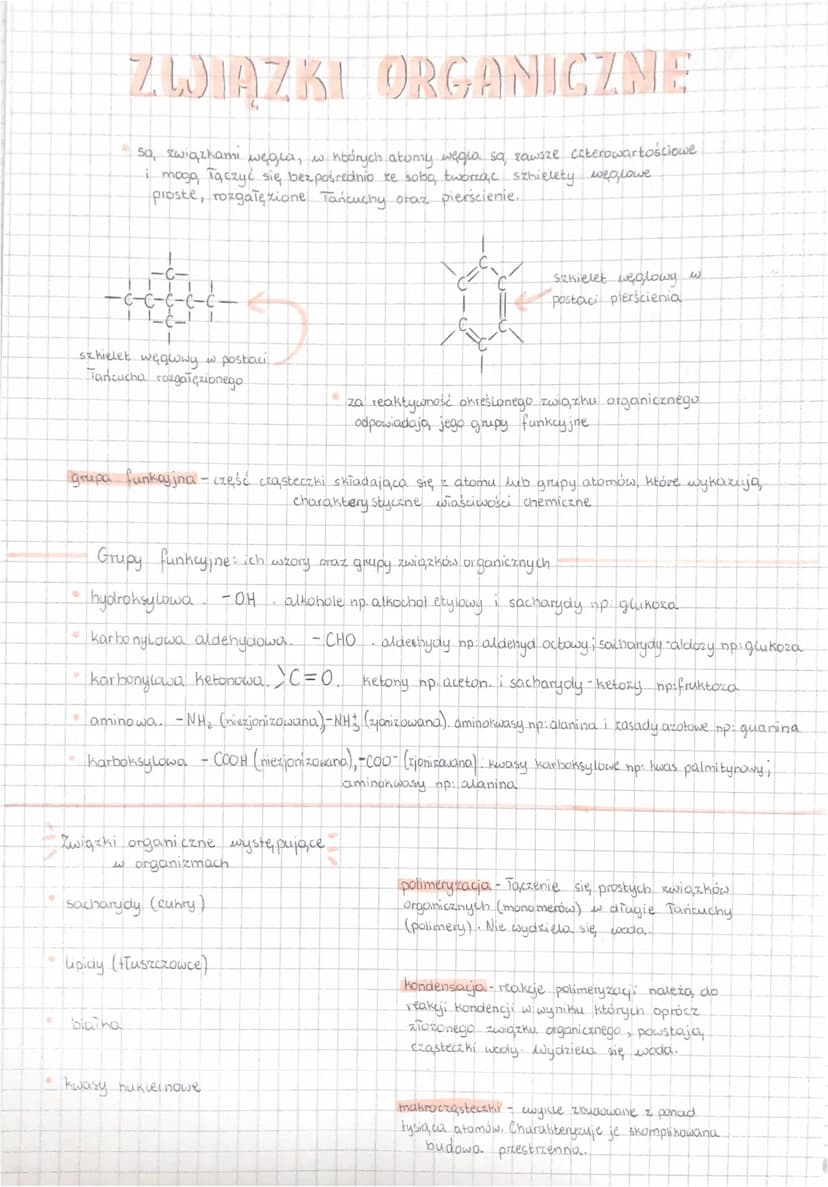 ZWIĄZKI ORGANICZNE
są związkami węgla, w których atomy węgla są zawsze czterowartościowe
i mogą łączyć się bezpośrednio ze sobą tworząc szkielety węglowe
proste, rozgałęzione łańcuchy oraz pierścienie.
-C-
-C-C-C-C-C-
-C-
szkielet węglowy w postaci
łańcucha rozgałęzionego
C
C C
C C
C
szkielet węglowy w
postaci pierścienia
za reaktywność określonego związku organicznego
odpowiadają jego grupy funkcyjne
grupa funkcyjna - część cząsteczki składająca się z atomu lub grupy atomów, które wykazują
charakterystyczne właściwości chemiczne
Grupy funkcyjne: ich wzory oraz grupy związków organicznych
hydroksylowa. -OH. alkohole np. alkochol etylowy i sacharydy np: glukoza
karbonylowa aldehydowa. -CHO. aldechydy np: aldehyd octowy; sacharydy-aldozy np: glukoza
karbonylowa ketonowa. >C=O. ketony np. aceton. i sacharydy-ketozy np: fruktoza
aminowa. -NH₂ (niezjonizowana)-NH₃⁺ (zjonizowana). aminokwasy np: alanina i zasady azotowe np: guanina
karboksylowa -COOH (niezjonizowana),-COO⁻ (zjonizowana). kwasy karboksylowe np: kwas palmitynowy;
aminokwasy np: alanina
Związki organiczne występujące
w organizmach
sacharydy (cukry)
lipidy (tłuszczowce)
białka
kwasy nukleinowe
polimeryzacja - łączenie się prostych związków
organicznych (monomerów) w długie łańcuchy
(polimery). Nie wydziela się woda.
kondensacja - reakcje polimeryzacji należą do
reakcji kondencji w wyniku których oprócz
złożonego związku organicznego, powstają
cząsteczki wody. Wydziela się woda.
makrocząsteczki - zwykle zbudowane z ponad
tysiąca atomów. Charakteryzuje je skomplikowana
budowa przestrzenna.